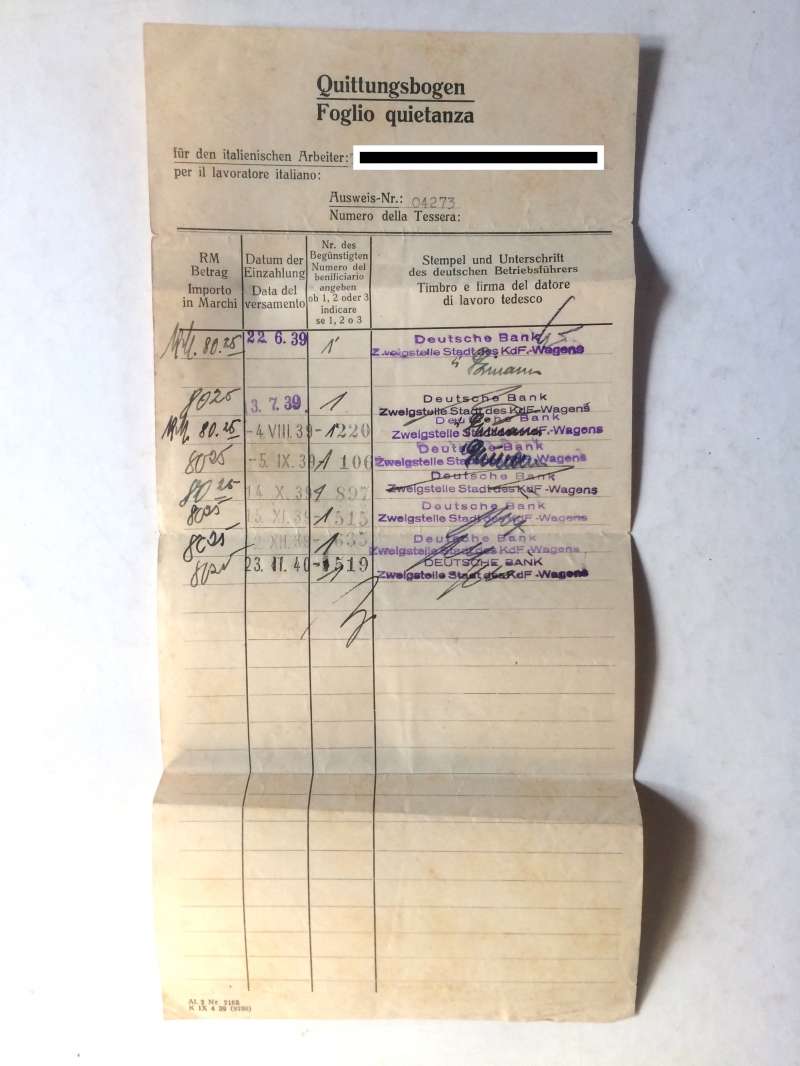 Quittungsbogen
Foglio quietanza
für den italienischen Arbeiter:
per il lavoratore italiano:
Ausweis-Nr.: 04273
Numero della Tessera:
RM
Betrag
Importo
in Marchi
Datum der
Einzahlung
Data del
versamento
Nr. des
Begünstigten
Numero del
benificiario
angeben
ob 1, 2 oder 3
indicare
se 1, 2 o 3
Stempel und Unterschrift
des deutschen Betriebsführers
Timbro e firma del datore
di lavoro tedesco
80.25 22 6.39 1 Deutsche Bank
Zweigstelle Stadt des KdF.-Wagens
8025 3. 7. 39. 1 Deutsche Bank
Zweigstelle Stadt des KdF.-Wagens
80.25 -4. VIII. 39 -1 220 Deutsche Bank
Zweigstelle Stadt des KdF.-Wagens
8025 -5. IX. 39 1 106 Deutsche Bank
Zweigstelle Stadt des KdF.-Wagens
8025 14. X. 39 1 897 Deutsche Bank
Zweigstelle Stadt des KdF.-Wagens
8025 15. XI. 39 -1 515 Deutsche Bank
Zweigstelle Stadt des KdF.-Wagens
8025 XII. 39 1 635 Deutsche Bank
Zweigstelle Stadt des KdF.-Wagens
8025 23. II. 40 -1 519 DEUTSCHE BANK
Zweigstelle Stadt des KdF.-Wagens